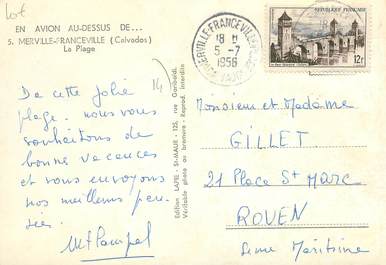 Lot
EN AVION AU-DESSUS DE...
5. MERVILLE-FRANCEVILLE (Calvados)
La Plage
14
De cette jolie
plage. nous vous
souhaitons de
bonne vacances
et vous envoyons
nos meilleurs pen-
sées.
Edition LAPIE - St-MAUR - 125, rue Garibaldi.
Véritable photo au bromure - Reprod. interdite
MERVILLE-FRANCEVILLE-PLAGE
18 H
5 - 7
1956
POSTES
REPUBLIQUE FRANÇAISE
12f
Monsieur et Madame
GILLET
21 Place St Marc
ROUEN
Seine Maritime